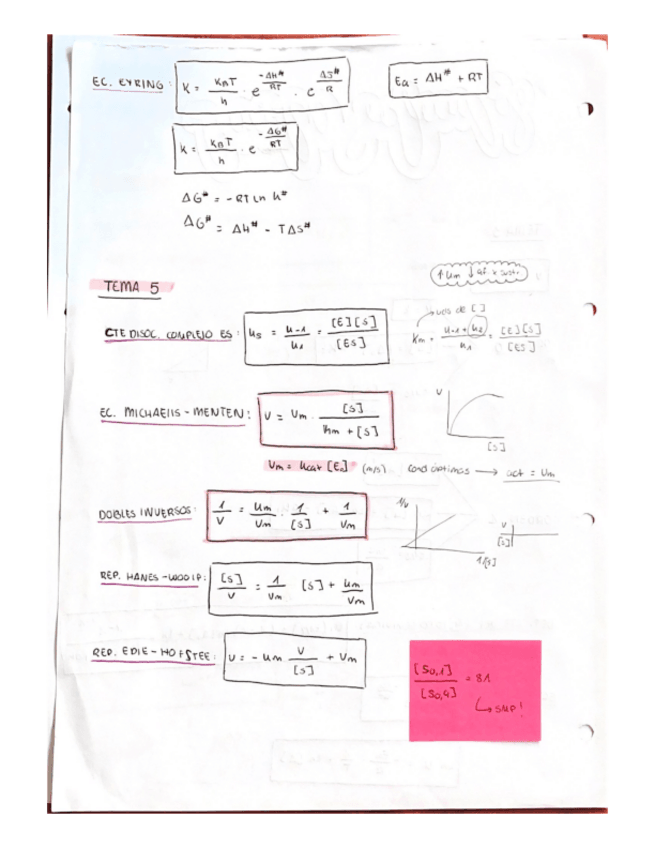 EC. EYRING: K = KBT / h · e^(-ΔH# / RT) · e^(ΔS# / R)
Ea = ΔH# + RT
K = KBT / h · e^(-ΔG# / RT)
ΔG# = -RT Ln K#
ΔG# = ΔH# - TΔS#
TEMA 5
↑ Km ↓ af. x sustr.
CTE DISOC. COMPLEJO ES: Ks = K-1 / K1 = [E][S] / [ES]
uds de []
Km = K-1 + K2 / K1 = [E][S] / [ES]
EC. MICHAELIS-MENTEN: V = Vm · [S] / Km + [S]
V
[S]
Vm = Kcat [E0] (m/s) cond óptimas → act = Vm
DOBLES INVERSOS: 1 / V = Km / Vm · 1 / [S] + 1 / Vm
1/V
1/[S]
V
[S]
REP. HANES-WOOLF: [S] / V = 1 / Vm [S] + Km / Vm
REP. EDIE-HOFSTEE: V = - Km V / [S] + Vm
[S0,1] / [S0,9] = 81
↳ SMP!